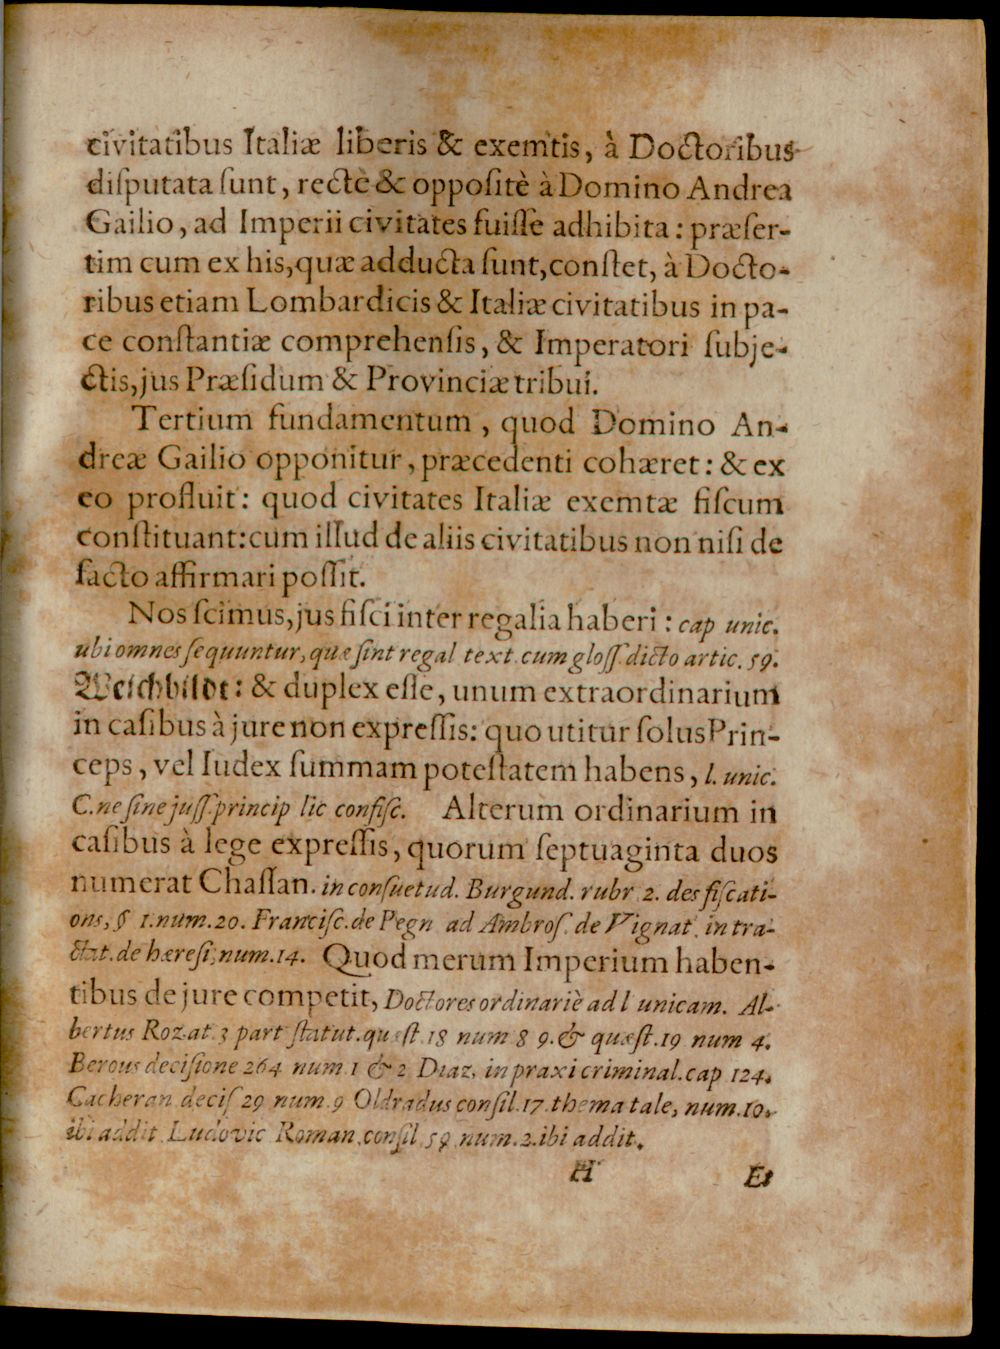 civitatibus Italiæ liberis & exemtis, à Doctoribus
diſputata ſunt, rectè & oppoſitè à Domino Andrea
Gailio, ad Imperii civitates fuiſſe adhibita: præſer-
tim cum ex his, quæ adducta ſunt, conſtet, à Docto-
ribus etiam Lombardicis & Italiæ civitatibus in pa-
ce conſtantiæ comprehenſis, & Imperatori ſubje-
ctis, jus Præſidum & Provinciæ tribui.
Tertium fundamentum, quod Domino An-
dreæ Gailio opponitur, præcedenti cohæret: & ex
eo profluit: quod civitates Italiæ exemtæ fiſcum
conſtituant: cum illud de aliis civitatibus non niſi de
facto affirmari poſſit.
Nos ſcimus, jus fiſci inter regalia haberi: cap unic.
ubi omnes ſequuntur, quæ ſint regal text. cum gloſſ. dicto artic. 59.
Weichbildt: & duplex eſſe, unum extraordinarium
in caſibus à jure non expreſſis: quo utitur ſolus Prin-
ceps, vel Iudex ſummam poteſtatem habens, l. unic.
C. ne ſine juſſ. princip lic confiſc. Alterum ordinarium in
caſibus à lege expreſſis, quorum ſeptuaginta duos
numerat Chaſſan. in conſuetud. Burgund. rubr 2. des fiſcati-
ons, § 1. num. 20. Franciſc. de Pegn ad Ambroſ. de Vignat. in tra-
ctat. de hæreſi, num. 14. Quod merum Imperium haben-
tibus de jure competit, Doctores ordinariè ad l unicam. Al-
bertus Rozat. 3 part ſtatut. quæſt. 18 num 8 9. & quæſt. 19 num 4.
Berous deciſione 264 num 1 & 2 Diaz. in praxi criminal. cap 124.
Cacheran deciſ 29 num. 9 Oldradus conſil. 17. thema tale, num. 10.
ibi addit Ludovic Roman. conſil. 59 num. 2. ibi addit.
H Et